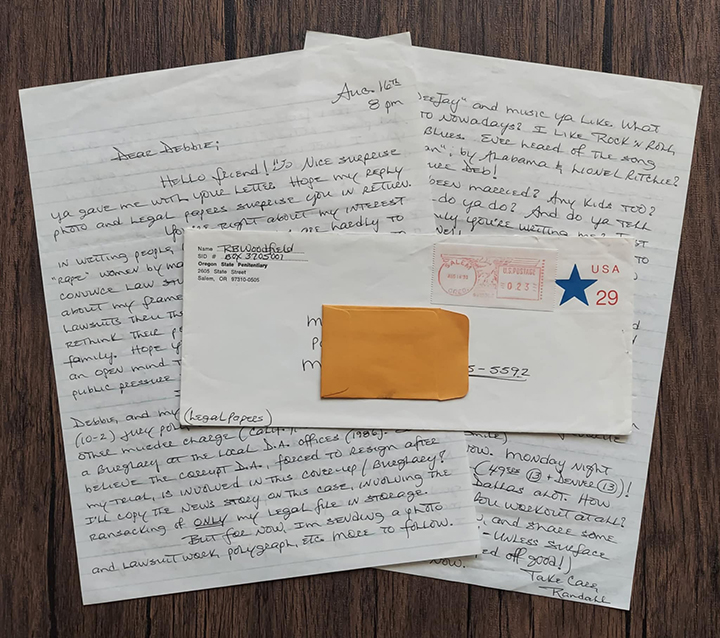 Aug. 16th
8 pm
Dear Debbie;
Hello friend! Nice surprise
ya gave me with your letter. Hope my reply
photo and legal papers surprise you in return.
right about my interest
in writing people,
are hardly to
"rape" women by ma
convince law stu
about my frame
lawsuits then th
rethink their p
family. Hope y
an open mind t
public pressure
Debbie, and my
(10-2) jury pol
other murder charge (Calif.).
a burglary at the local D.A. offices (1986).
believe the corrupt D.A., forced to resign after
my trial, is involved in this cover-up/burglary?
I'll copy the news story on this case, involving the
ransacking of ONLY my legal file in storage.
But for now, I'm sending a photo
and lawsuit work, polygraph, etc. more to follow.
DeeJay" and music ya like. What
to nowadays? I like Rock 'n Roll,
Blues. Ever heard of the song
an", by Alabama & Lionel Ritchie?
Deb!
been married? Any kids too?
do ya do? And do ya tell
only you're writing me?
Name RBWoodfield
SID # Box 3705001
Oregon State Penitentiary
2605 State Street
Salem, OR 97310-0505
SALEM
OREG
U.S. POSTAGE
0.23
USA
29
M
M
5-5592
(Legal Papers)
smile)
ow. Monday night
(49ers (13) + Denver (13))!
Dallas alot. How
you workout at all?
w, and share some
- unless surface
ed off good!)
now.
Take Care,
Randall